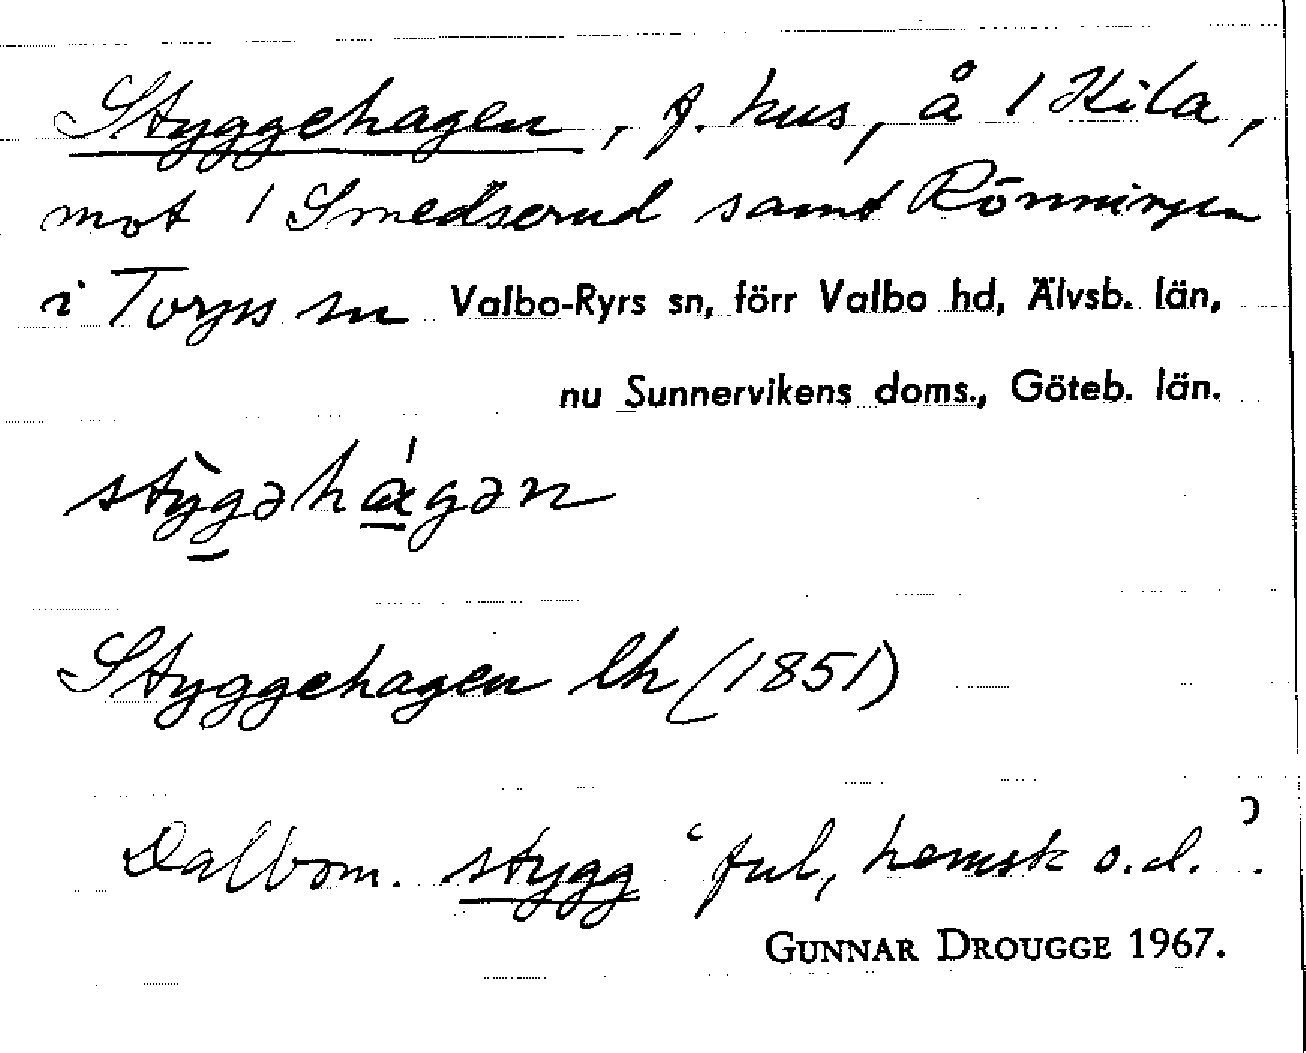 Styggehagen, f. hus, å 1 Kila,
mot 1 Smedserud samt Rönningen
i Torps sn Valbo-Ryrs sn, förr Valbo hd, Älvsb. län,
nu Sunnervikens doms., Göteb. län.
stỳgəhágən
Styggehagen lh (1851)
Dalbom. stygg 'ful, hemsk o.d.'.
GUNNAR DROUGGE 1967.